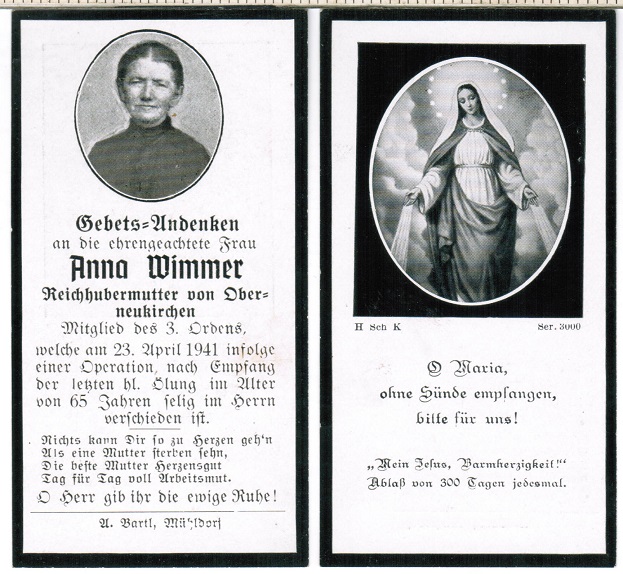 Gebets-Andenken
an die ehrengeachtete Frau
Anna Wimmer
Reichhubermutter von Ober-
neukirchen
Mitglied des 3. Ordens,
welche am 23. April 1941 infolge
einer Operation, nach Empfang
der letzten hl. Ölung im Alter
von 65 Jahren selig im Herrn
verschieden ist.
Nichts kann Dir so zu Herzen geh'n
Als eine Mutter sterben sehn,
Die beste Mutter Herzensgut
Tag für Tag voll Arbeitsmut.
O Herr gib ihr die ewige Ruhe!
A. Bartl, Mühldorf
H Sch K
Ser. 3000
O Maria,
ohne Sünde empfangen,
bitte für uns!
„Mein Jesus, Barmherzigkeit!"
Ablaß von 300 Tagen jedesmal.